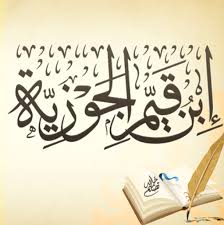 إِبْنُ قَيِّمِ الجَوْزِيَّةِ